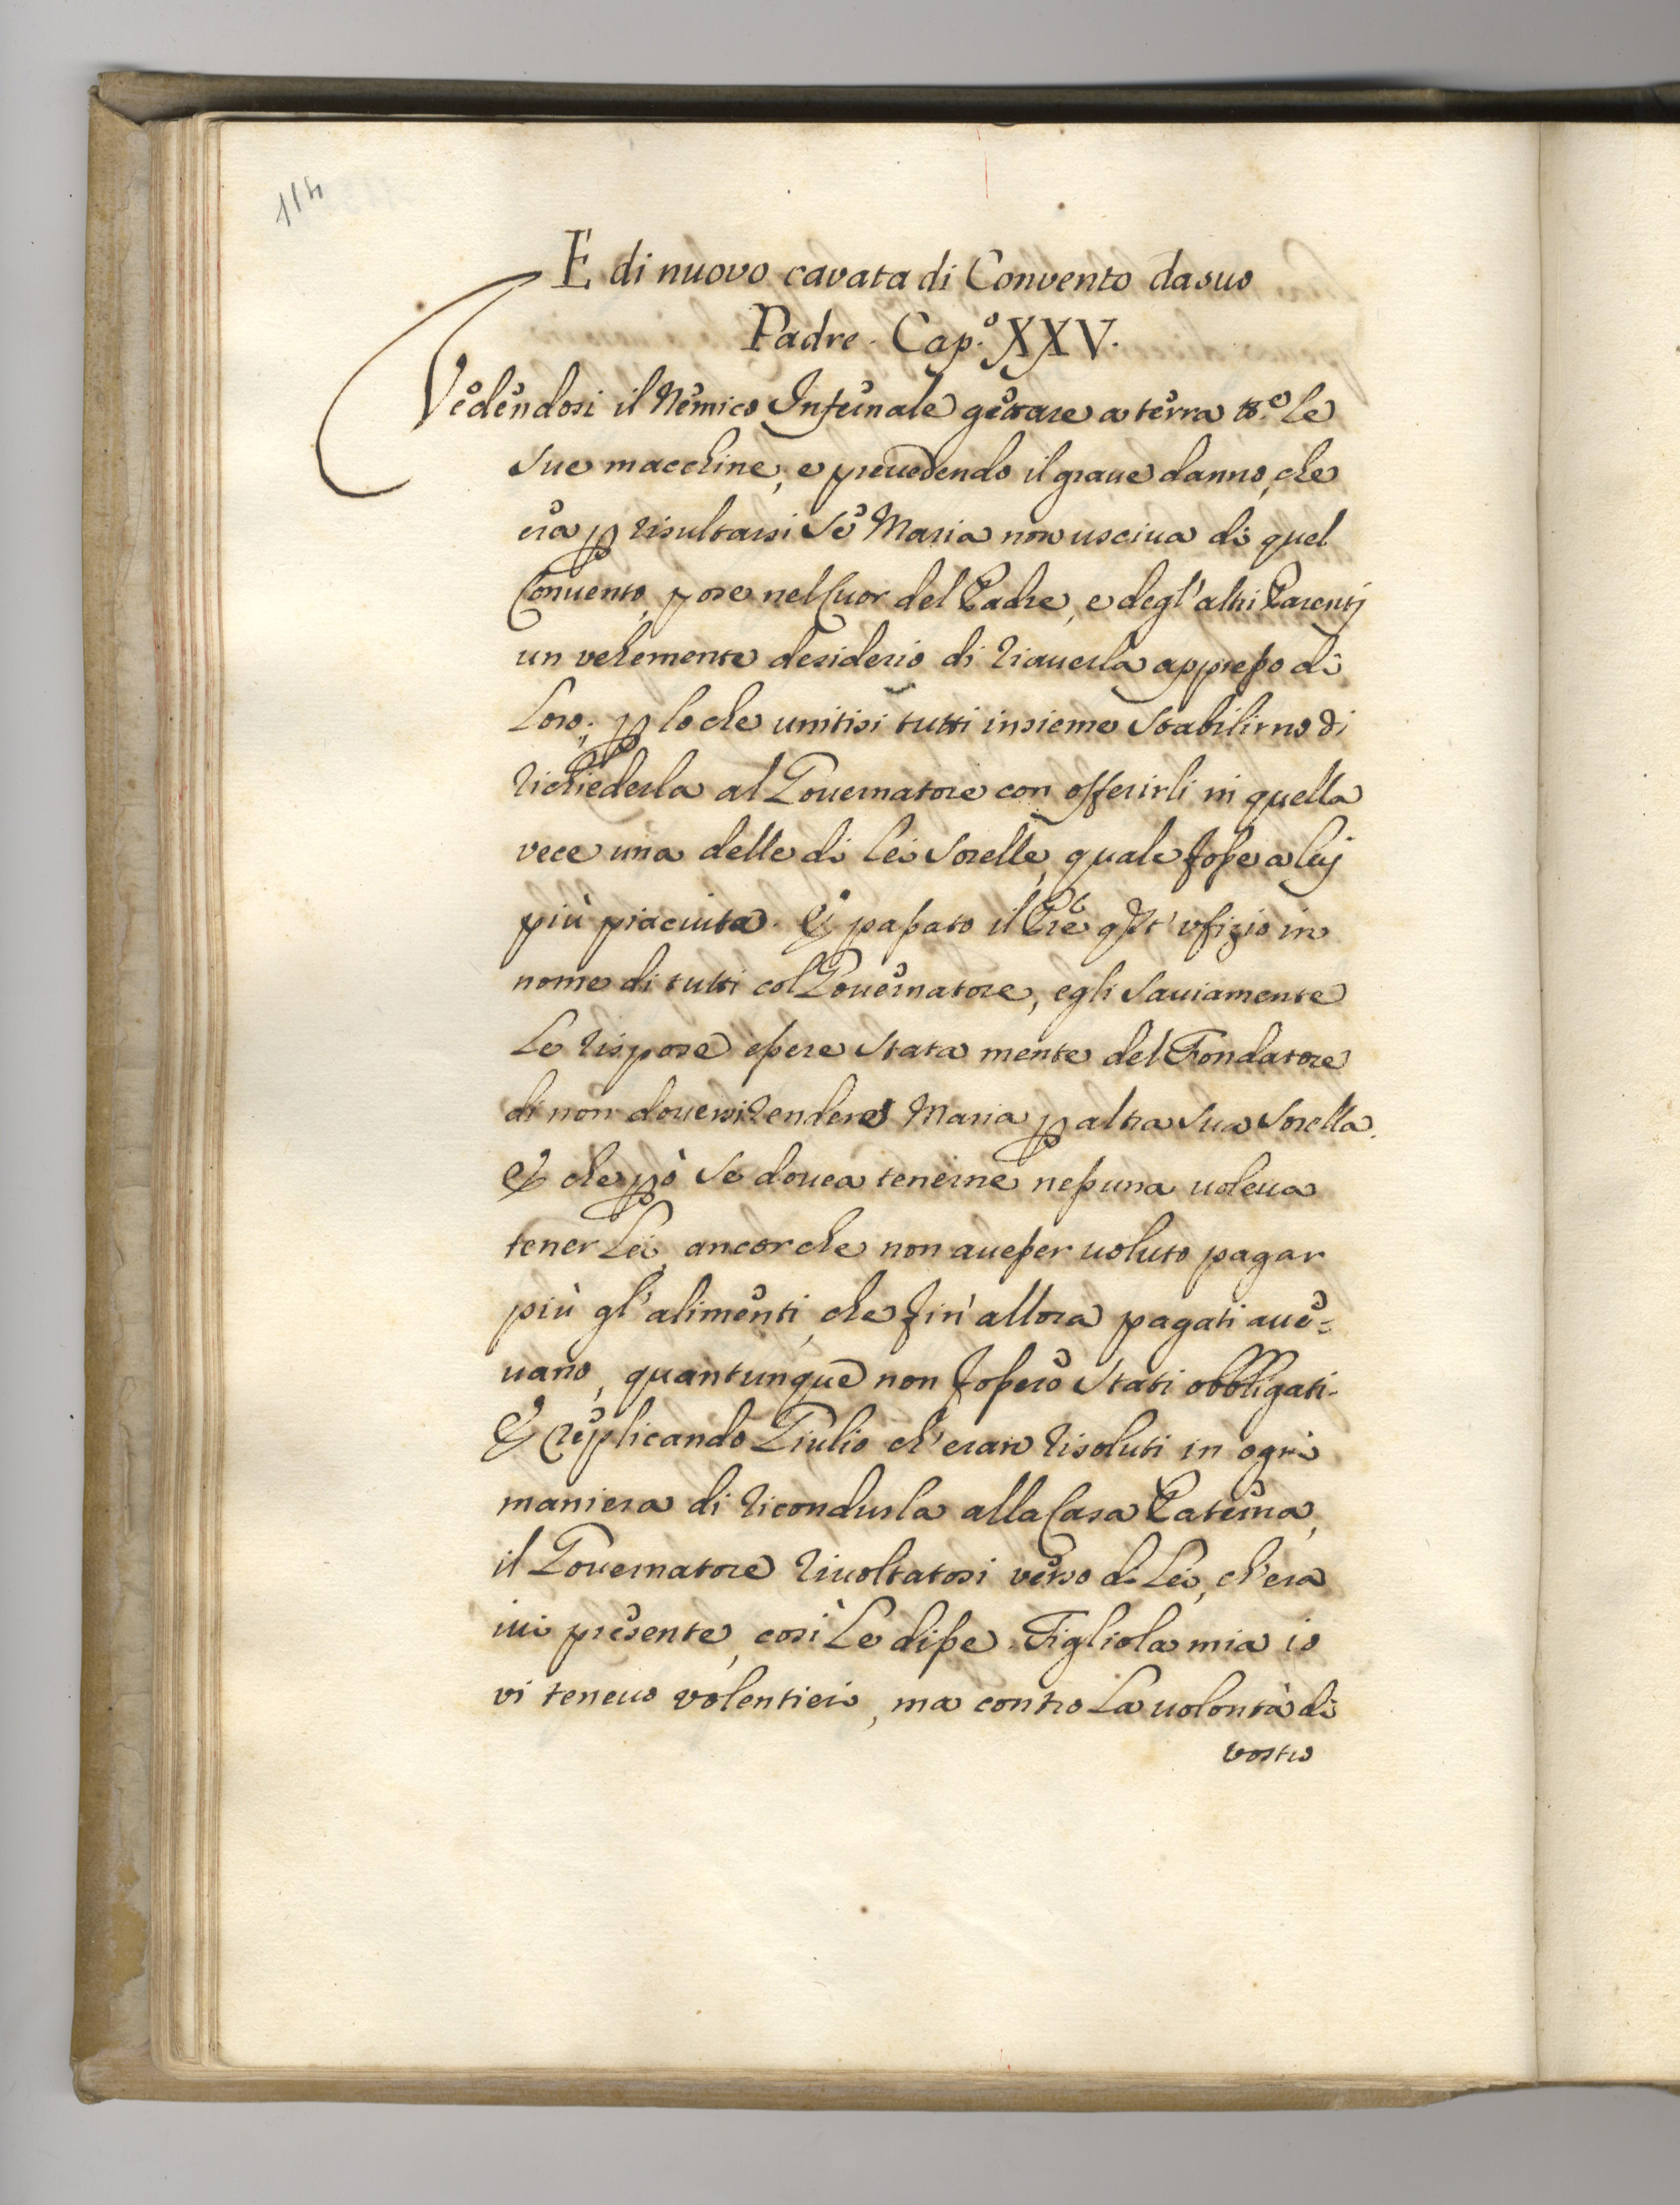 114
È di nuovo cavata di Convento da suo
Padre. Cap.º XXV.
Vedendosi il Nemico Infernale gettare a terra tt.e le
sue macchine, e prevedendo il graue danno, che
era p risultarsi se Maria non usciua di quel
Conuento, pose nel Cuor del Padre, e degl'altri Parentj
un vehemente desiderio di riauerla appresso di
Loro; p lo che unitisi tutti insieme stabilirno di
richiederla al Gouernatore con offerirli in quella
vece una delle di lei Sorelle, quale fosse a luj
più piaciuta. Et passato il Pre qst' vfizio in
nome di tutti col Gouernatore, egli sauiamente
Le rispose essere stata mente del Fondatore
di non douersi rendere Maria p altra sua Sorella.
Et che pò se douea tenerne nessuna voleua
tener Lei, ancorche non auesser uoluto pagar
più gl'alimenti, che fin'allora pagati aue=
uano, quantunque non fossero stati obbligati.
Et replicando Giulio ch'eran risoluti in ogni
maniera di ricondurla alla Casa Paterna,
il Gouernatore riuoltatosi verso di Lei, ch'era
iui presente, così Le disse. Figliola mia io
vi teneuo volentieri, ma contro La uolontà di
vostro